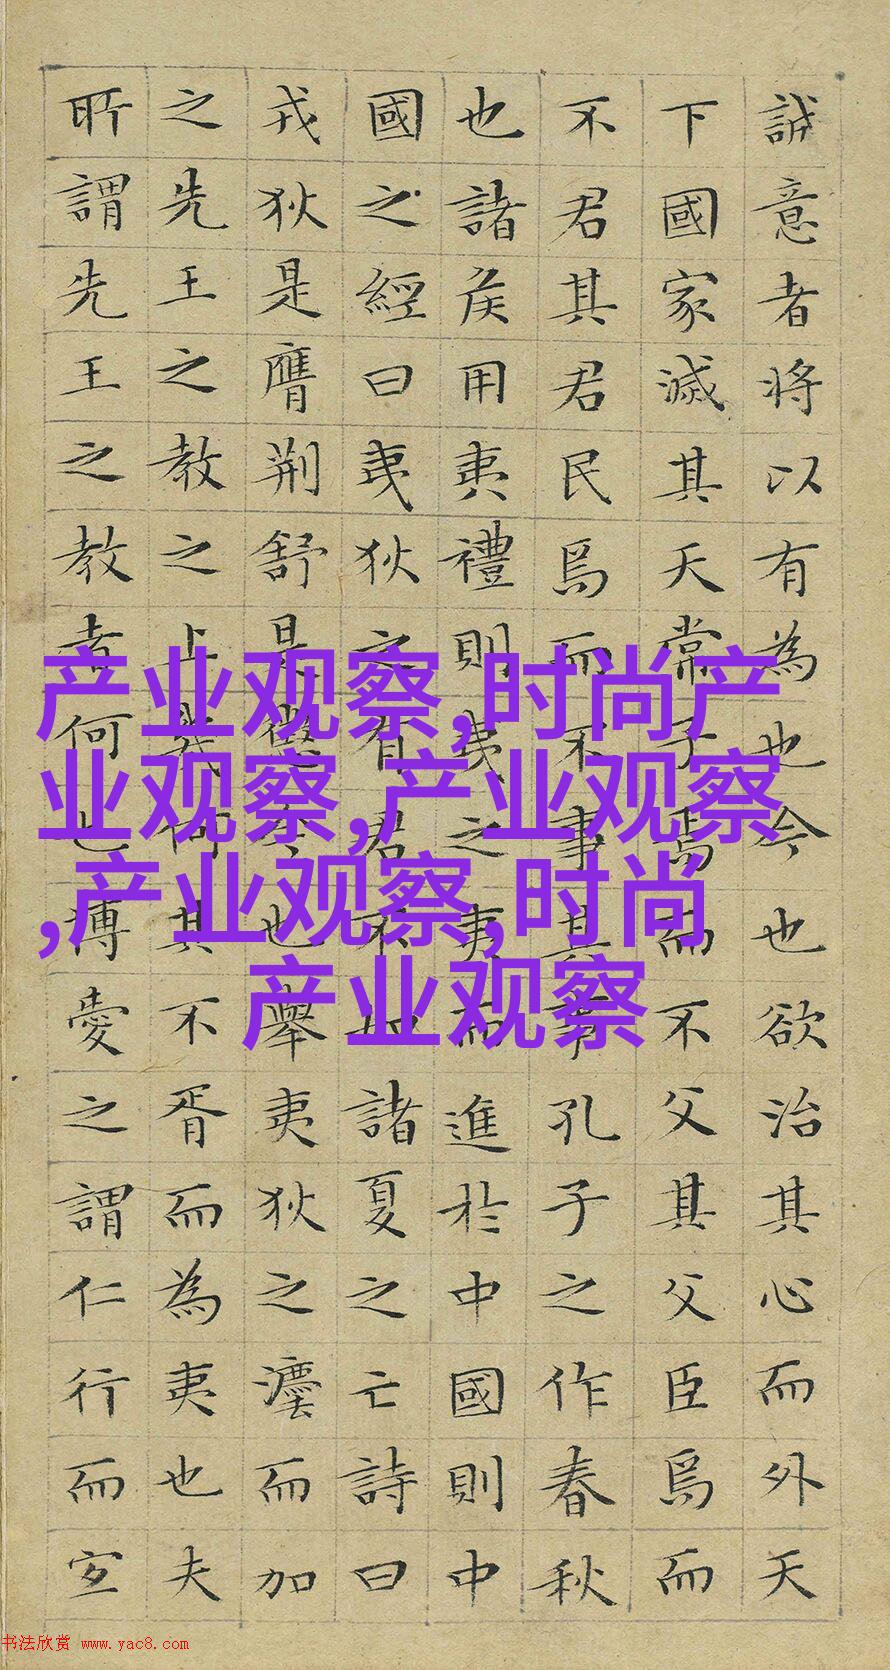 誠意者将以有為也今也欲治其心而外天
下國家滅其天常子焉而不父其父臣焉而
不君其君民焉而不事其事孔子之作春秋
也諸侯用夷禮則夷之夷而進於中國則中
國之經曰夷狄之有君不如諸夏之亡詩曰
戎狄是膺荆舒是懲今也舉夷狄之灋而加
之先王之教之上幾何其不胥而為夷也夫
所謂先王之教者何也博愛之謂仁行而宜
产业观察,时尚产
业观察,产业观察
,产业观察,时尚
产业观察
书法欣赏 www.yac8.com